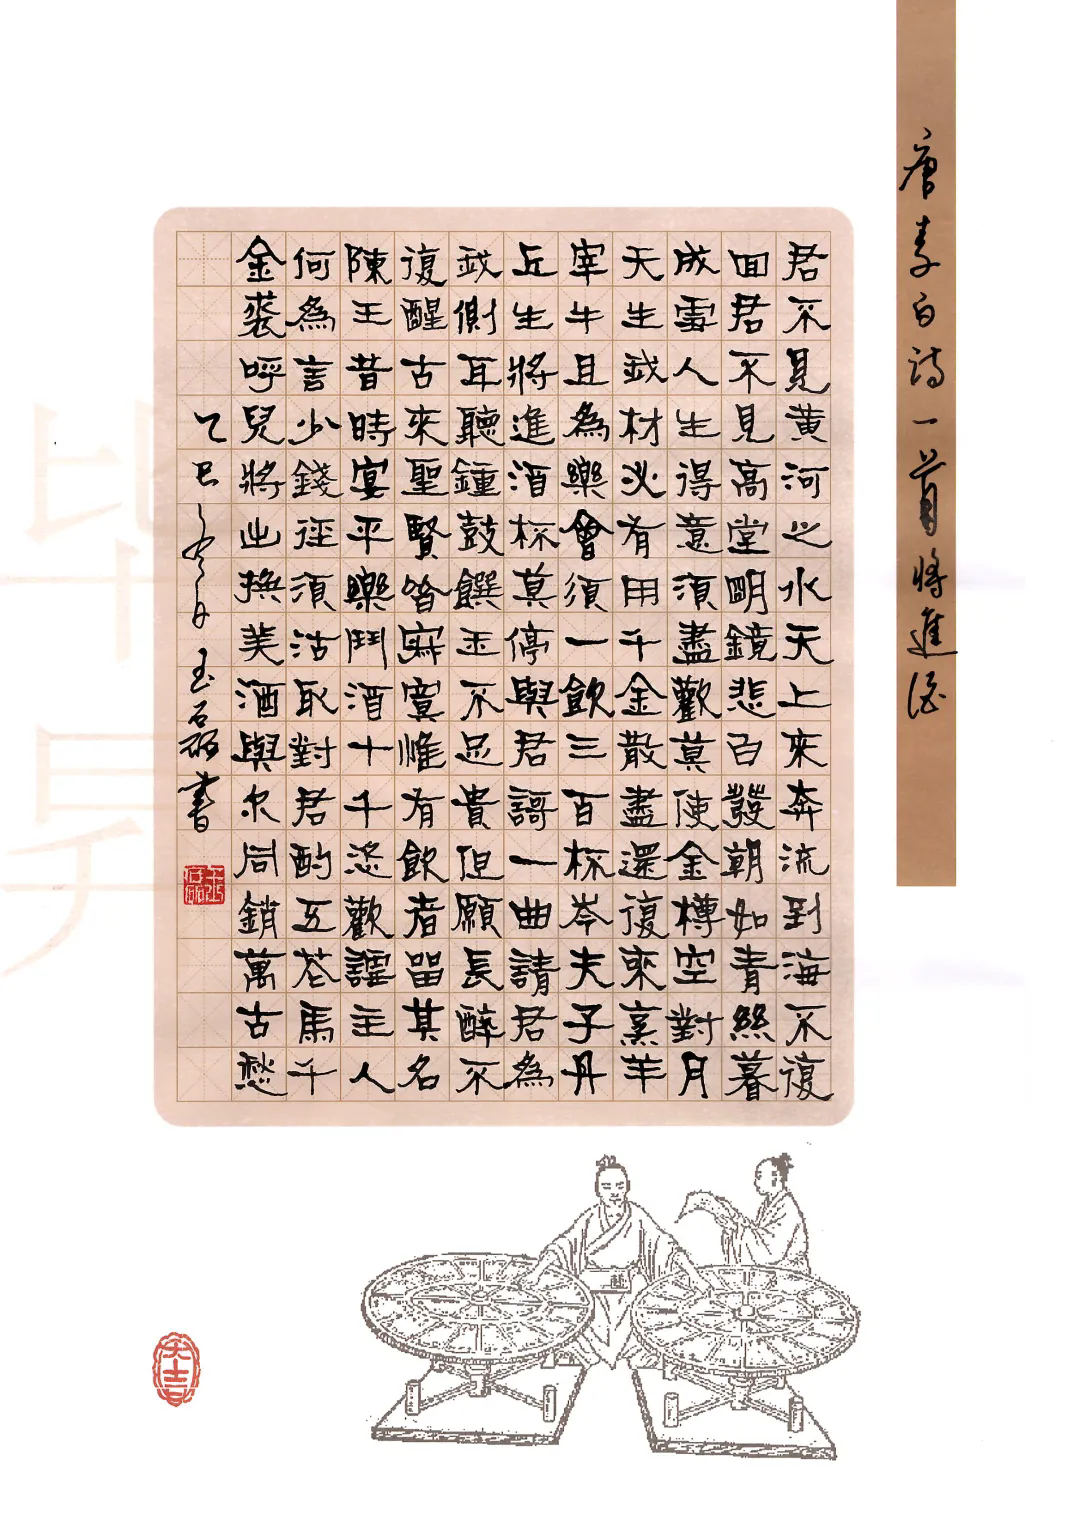 唐李白诗一首將進酒
君不見黄河之水天上來奔流到海不復
回君不見高堂明鏡悲白發朝如青絲暮
成雪人生得意須盡歡莫使金樽空對月
天生我材必有用千金散盡還復來烹羊
宰牛且為樂會須一飲三百杯岑夫子丹
丘生將進酒杯莫停與君謌一曲請君為
我側耳聽鍾鼓饌玉不足貴但願長醉不
復醒古來聖賢皆寂寞惟有飲者留其名
陳王昔時宴平樂鬥酒十千恣歡謔主人
何為言少錢徑須沽取對君酌五花馬千
金裘呼兒將出換美酒與尔同銷萬古愁
乙巳 書
毕昇